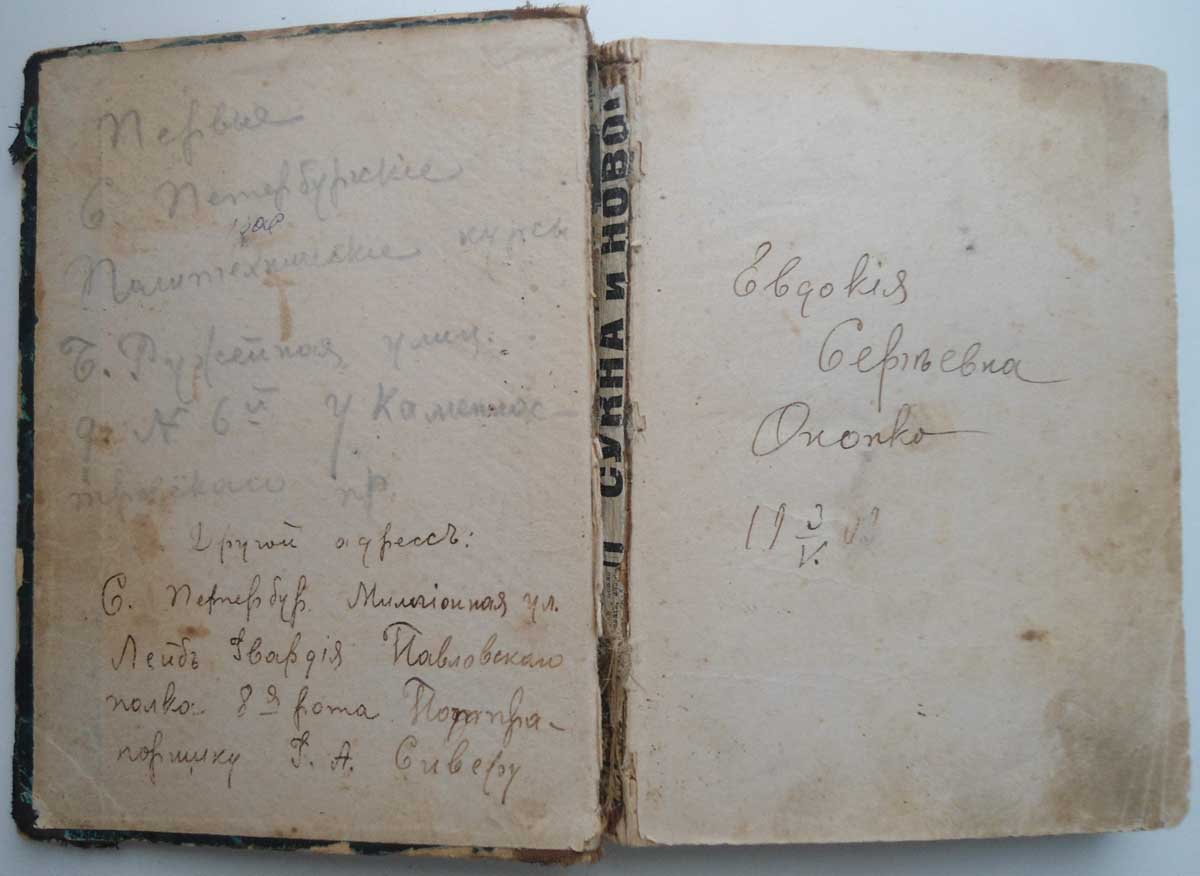 Первые
С. Петербургскіе
Политехническіе курсы
Б. Ружейная улиц.
д. № 6й У Каменноос-
тровскаго пр.
Другой адрессъ:
С. Петербур. Миліонная ул.
Лейбъ Гвардія Павловскаго
полка 8я рота Подпра-
порщику Г. А. Сиверу
СУКНА и НОВО
Евдокія
Сергѣевна
Онопко
19 3/V.